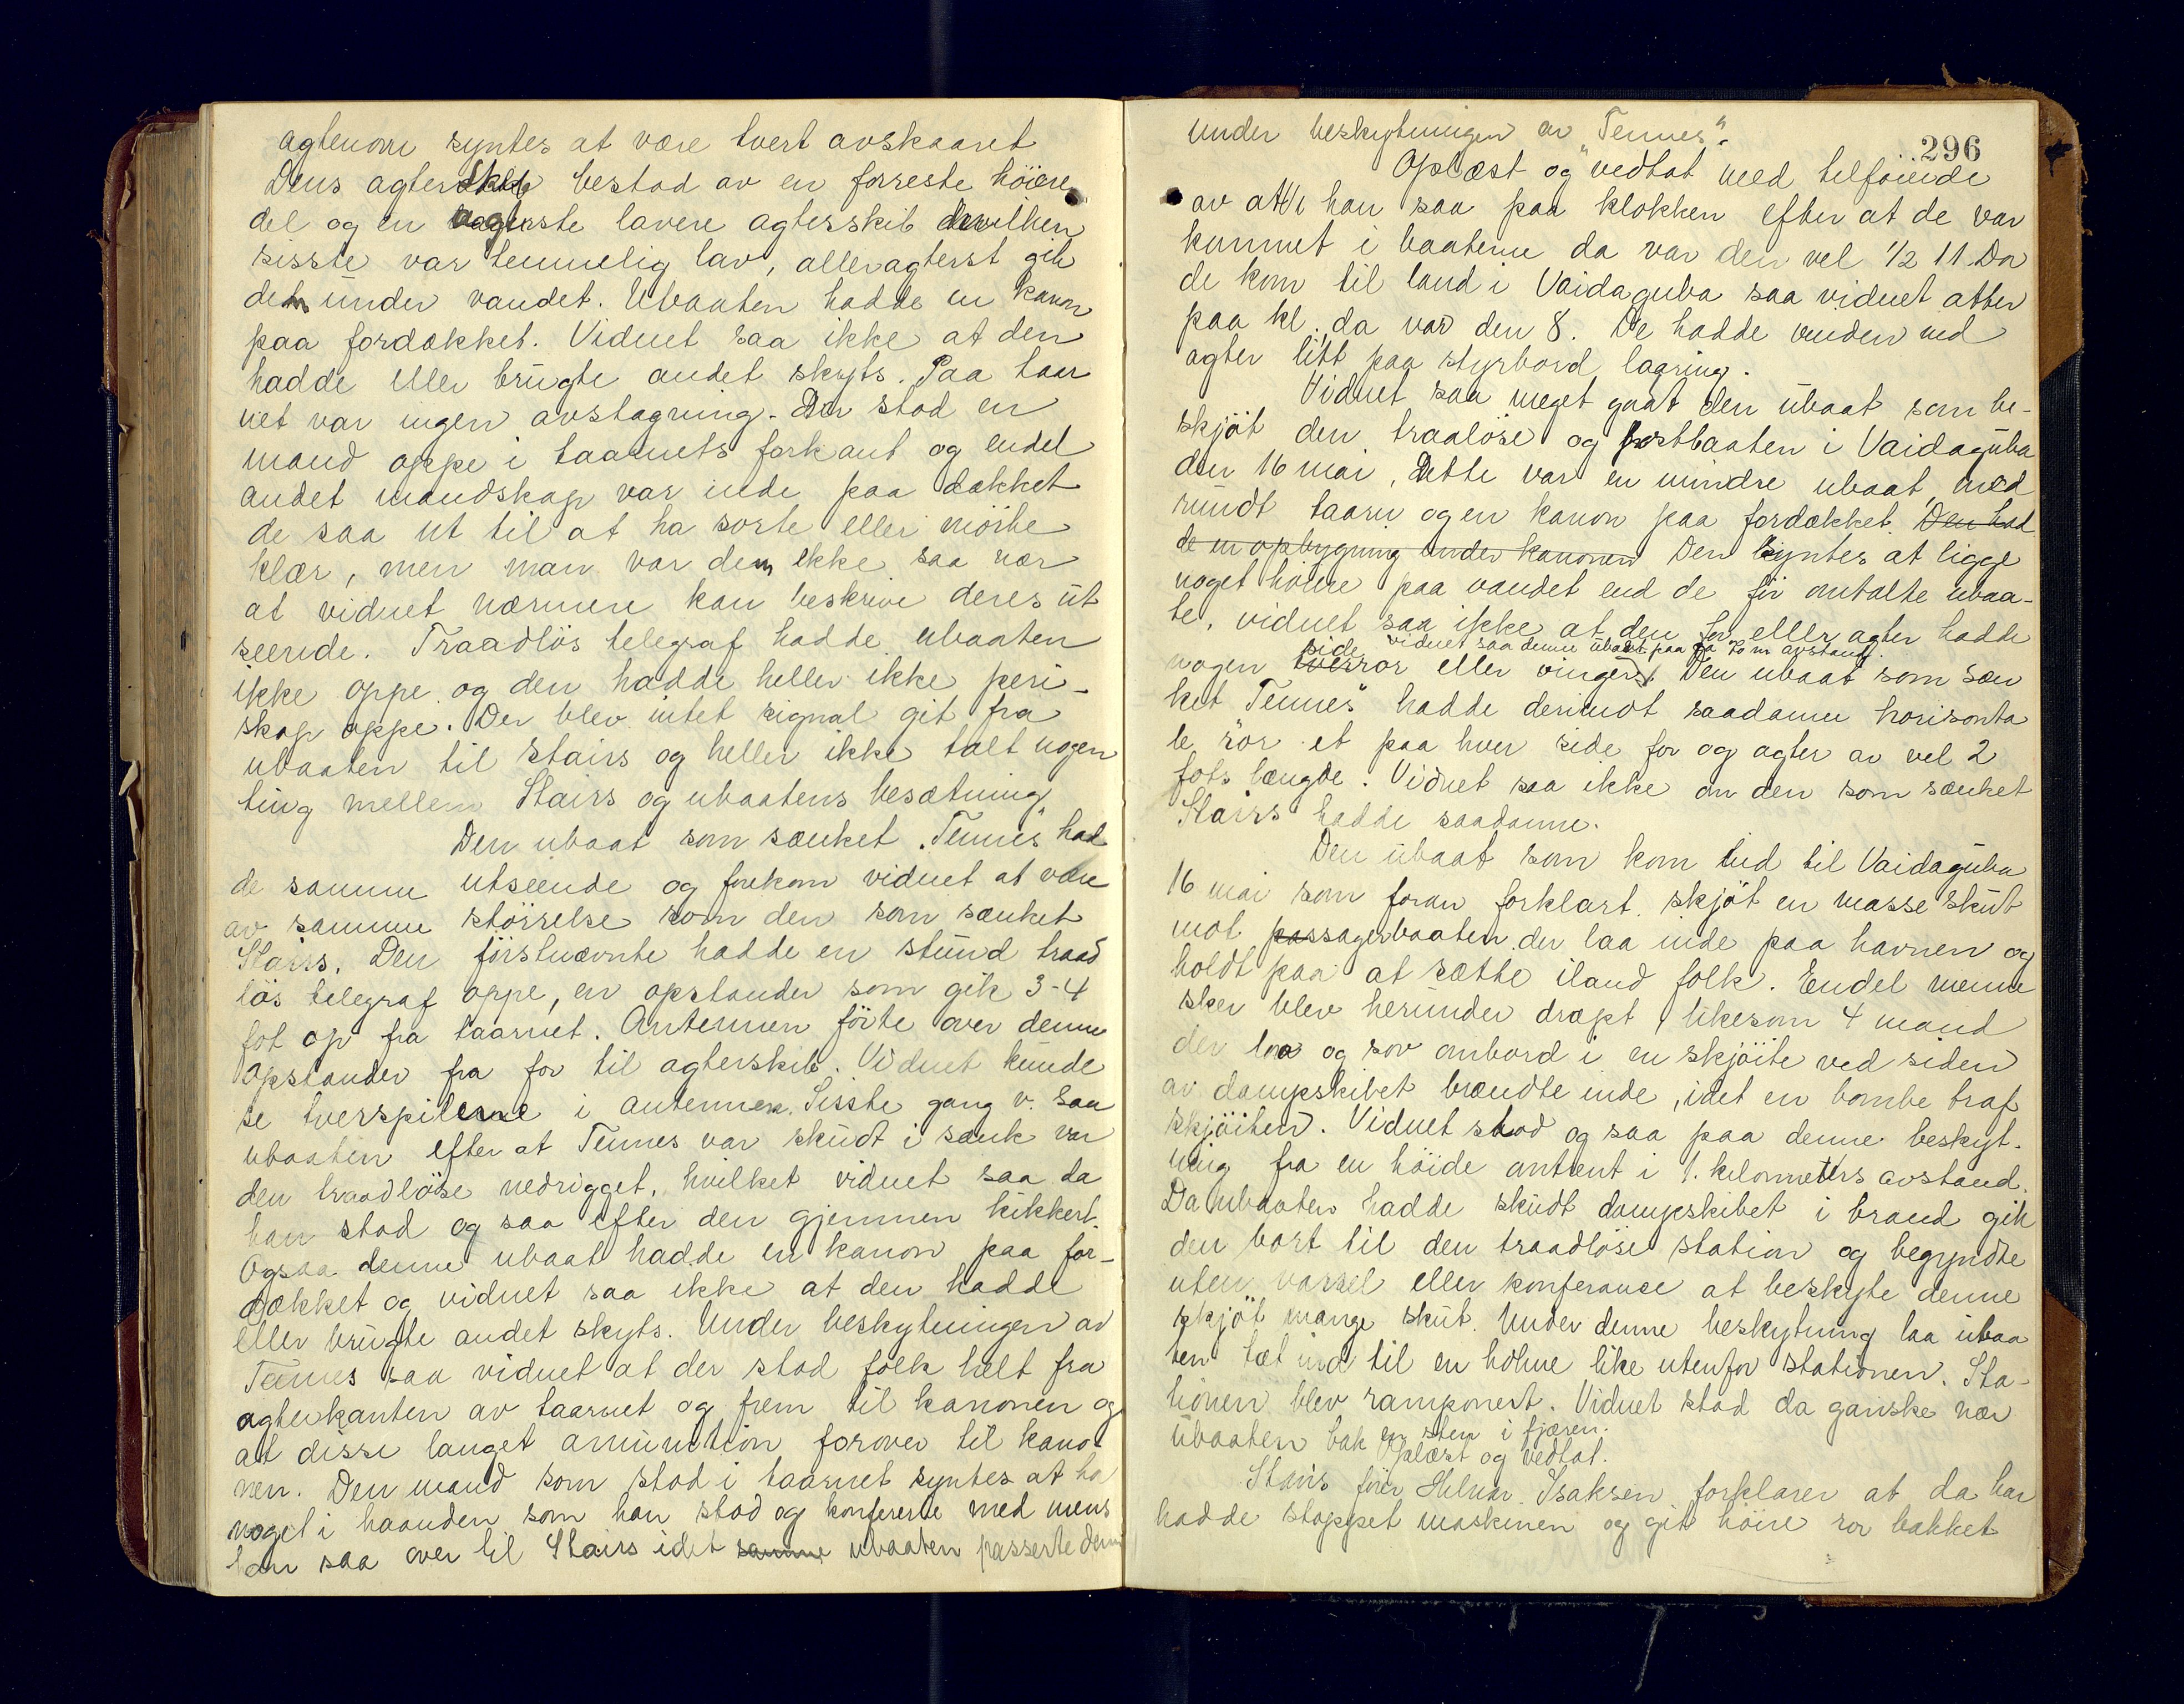 agtenom syntes at være tvert avskaaret
Dens agterskib bestod av en forreste höiere
del og en agterste lavere agterskib hvilken
sisste var temmelig lav, alleragterst gik
den under vandet. Ubaaten hadde en kanon
paa fordækket. Vidnet saa ikke at den
hadde eller brugte andet skyts. Paa taar
net var ingen avstagning. Der stod en
mand oppe i taarnets forkant og endel
andet mandskap var inde paa dækket
de saa ut til at ha sorte eller mörke
klær, men man var dem ikke saa nær
at vidnet nærmere kan beskrive deres ut
seende. Traadlös telegraf hadde ubaaten
ikke oppe og den hadde heller ikke peri-
skop oppe. Der blev intet signal git fra
ubaaten til Stairs og heller ikke talt nogen
ting mellem Stairs og ubaatens besætning.
Den ubaat som sænket "Tennes" had
de samme utseende og forekom vidnet at være
av samme störrelse som den som sænket
Stairs. Den förstnævnte hadde en stund traad
lös telegraf oppe, en opstander som gik 3-4
fot op fra taarnet. Antennen förte over denne
opstander fra for til agterskib. Vidnet kunde
se tverspilene i antennen. Sisste gang v. saa
ubaaten efter at Tennes var skudt i sænk var
den traadlöse nedrigget, hvilket vidnet saa da
han stod og saa efter den gjennem kikkert.
Ogsaa denne ubaat hadde en kanon paa for-
dækket og vidnet saa ikke at den hadde
eller brugte andet skyts. Under beskytningen av
Tennes saa vidnet at der stod folk helt fra
agterkanten av taarnet og frem til kanonen og
at disse langet amunition forover til kano-
nen. Den mand som stod i taarnet syntes at ha
noget i haanden som han stod og konfererte med mens
han saa over til Stairs idet samme ubaaten passerte denne
296
under beskytningen av "Tennes".
Oplæst og vedtat med tilföiende
av at han saa paa klokken efter at de var
kommet i baatene da var den vel 1/2 11. Da
de kom til land i Vaidaguba saa vidnet atter
paa kl. da var den 8. De hadde vinden ind
agter litt paa styrbord laaring.
Vidnet saa meget godt den ubaat som be-
skjöt den traalöse og postbaaten i Vaidaguba
den 16 mai. Dette var en mindre ubaat med
rundt taarn og en kanon paa fordækket. Den had
de en opbygning under kanonen Den syntes at ligge
noget höiere paa vandet end de för omtalte ubaa-
te, vidnet saa ikke at den for eller agter hadde
side vidnet saa denne ubaat paa ca 70 m avstand.
nogen tverror eller vinger. Den ubaat som sæn
ket "Tennes" hadde derimot saadanne horisonta
le rör et paa hver side for og agter av vel 2
fots længde. Vidnet saa ikke om den som sænket
Stairs hadde saadanne.
Den ubaat som kom ind til Vaidaguba
16 mai som foran forklart, skjöt en masse skut
mot passagerbaaten der laa inde paa havnen og
holdt paa at sætte iland folk. Endel menne
sker blev herunder dræpt likesom 4 mand
der laa og sov ombord i en skjöite ved siden
av dampskibet brændte inde, idet en bombe traf
skjöiten. Vidnet stod og saa paa denne beskyt-
ning fra en höide omtrent i 1. kilometers avstand.
Da ubaaten hadde skudt dampskibet i brand gik
den bort til den traadlöse station og begyndte
uten varsel eller konferanse at beskyte denne
skjöt mange skut. Under denne beskytning laa ubaa
ten tæt ind til en holme like utenfor stationen. Sta-
tionen blev ramponert. Vidnet stod da ganske nær
ubaaten bak en sten i fjæren.
Oplæst og vedtat.
Stairs förer Hilmar Isaksen forklarer at da han
hadde stoppet maskinen og git höire ror bakket